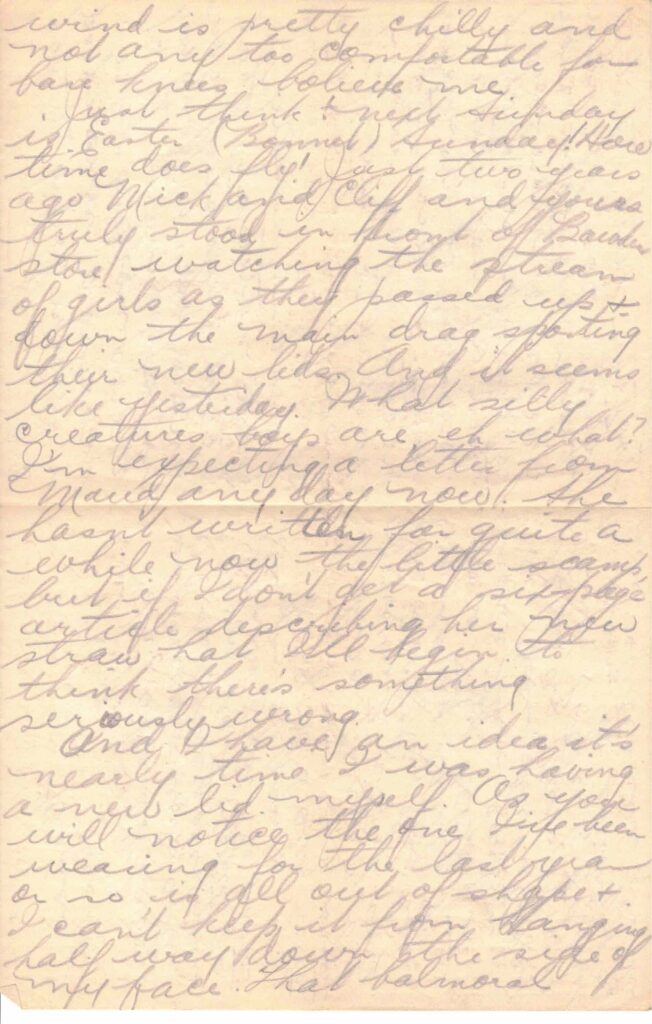 wind is pretty chilly and
not any too comfortable for
bare knees believe me
Just think! next Sunday
is Easter (Bonnet) Sunday! How
time does fly! Just two years
ago Mick and Cliff and yours
truly stood in front of
store watching the stream
of girls as they passed up +
down the main drag sporting
their new lids. And it seems
like yesterday. What silly
creatures boys are, eh what?
I'm expecting a letter from
Maud any day now. She
hasnt written for quite a
while now the little scamp,
but if I don't get a six page
article describing her new
straw hat I'll begin to
think there's something
seriously wrong.
And I have an idea it's
nearly time I was having
a new lid myself. As you
will notice the one I've been
wearing for the last year
or so is all out of shape +
I can't keep it from hanging
half way down the side of
my face. That balmoral